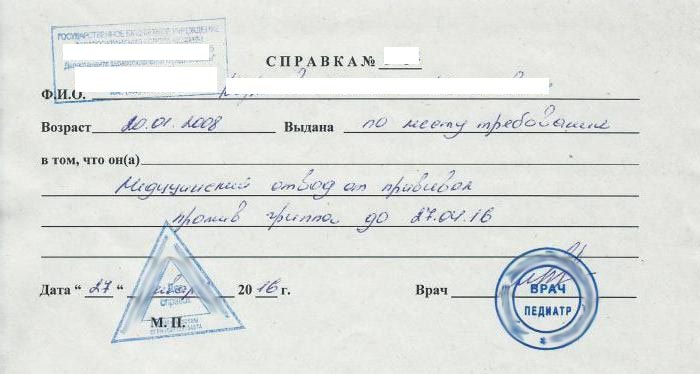 ГОСУДАРСТВЕННОЕ БЮДЖЕТНОЕ УЧРЕЖДЕНИЕ
СПРАВКА №
Ф.И.О.
Возраст 20.01.2008 Выдана по месту требования
в том, что он(а)
Медицинский отвод от прививок
против гриппа до 27.04.16
Дата “ 27 “ января 20 16 г. Врач
Для справок
М. П.
ВРАЧ
ПЕДИАТР